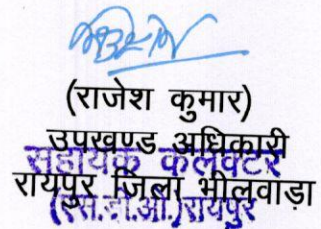 (राजेश कुमार)
उपखण्ड अधिकारी
सहायक कलेक्टर
रायपुर जिला भीलवाड़ा
(एस.डी.ओ.)रायपुर